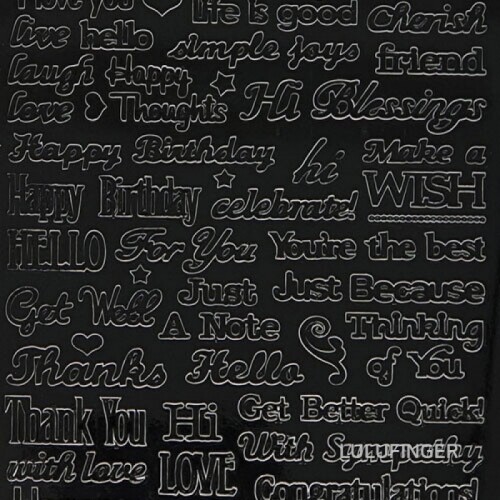 I love you
life is good
Cherish
live hello
simple joys
friend
laugh Happy
love Thoughts
Hi Blessings
Happy Birthday
hi
Make a
WISH
Happy Birthday
celebrate!
HELLO
For You
You're the best
Get Well
Just
A Note
Just Because
Thinking
of You
Thanks
Hello
Thank You
Hi
Get Better Quick!
With Sympathy
LULUFINGER
with love
LOVE
Congratulations!